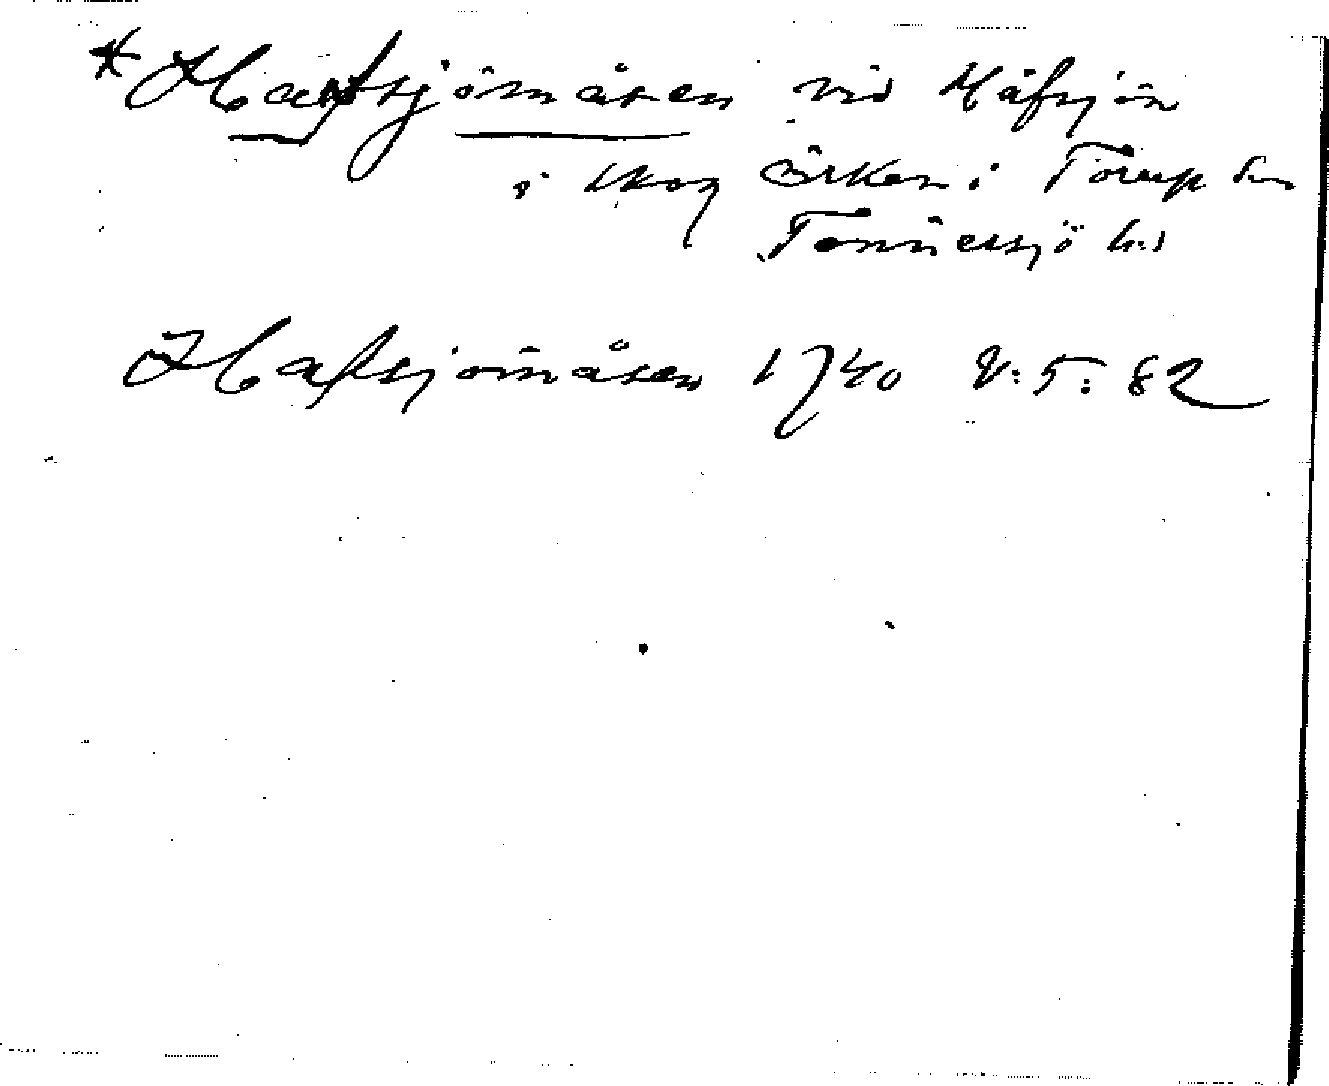 * Hafsjömåsen vid Håfsjön
i skog Örken i Torup sn
Tönnersjö hd
Hafsjömåsen 1740 V:5:82